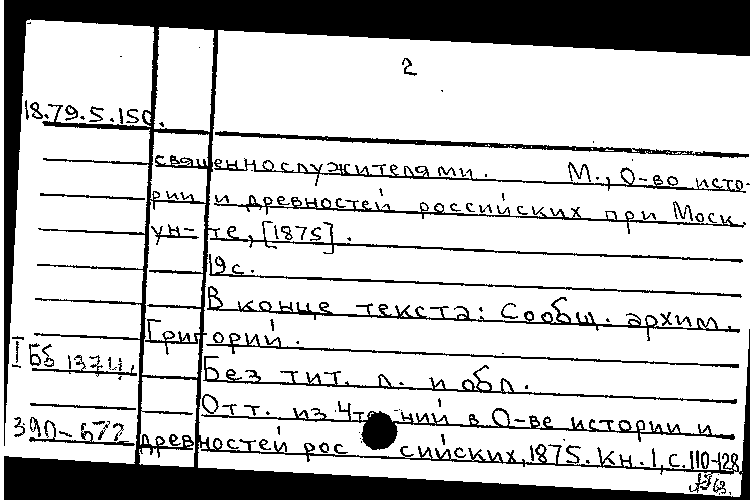 2
18.79.5.150.
священнослужителями. М., О-во исто-
рии и древностей российских при Моск.
ун-те, [1875].
19 с.
В конце текста: Сообщ. архим.
Григорий.
Без тит. л. и обл.
I Бб 1374.
Отт. из Чтений в О-ве истории и
древностей российских, 1875. Кн. 1, с. 110-128.